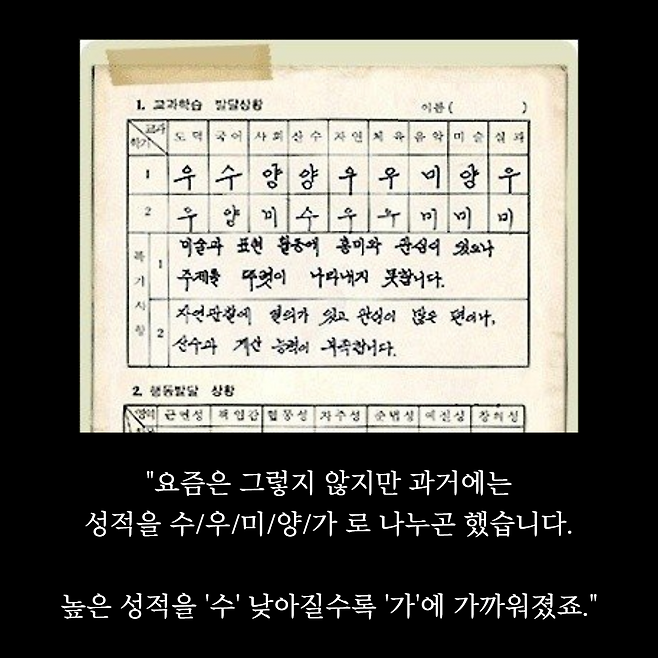 1. 교과학습 발달상황 이름( )
교과 학기 도덕 국어 사회 산수 자연 체육 음악 미술 실과
1 우 수 양 양 우 우 미 양 우
2 우 양 미 수 우 우 미 미 미
특기사항
1 미술과 표현 활동에 흥미와 관심이 있으나
주제를 뚜렷이 나타내지 못합니다.
2 자연관찰에 열의가 있고 관심이 많은 편이나,
산수과 계산 능력이 부족합니다.
2. 행동발달 상황
영역 근면성 책임감 협동성 자주성 준법성 예절성 창의성
"요즘은 그렇지 않지만 과거에는
성적을 수/우/미/양/가 로 나누곤 했습니다.
높은 성적을 '수' 낮아질수록 '가'에 가까워졌죠."